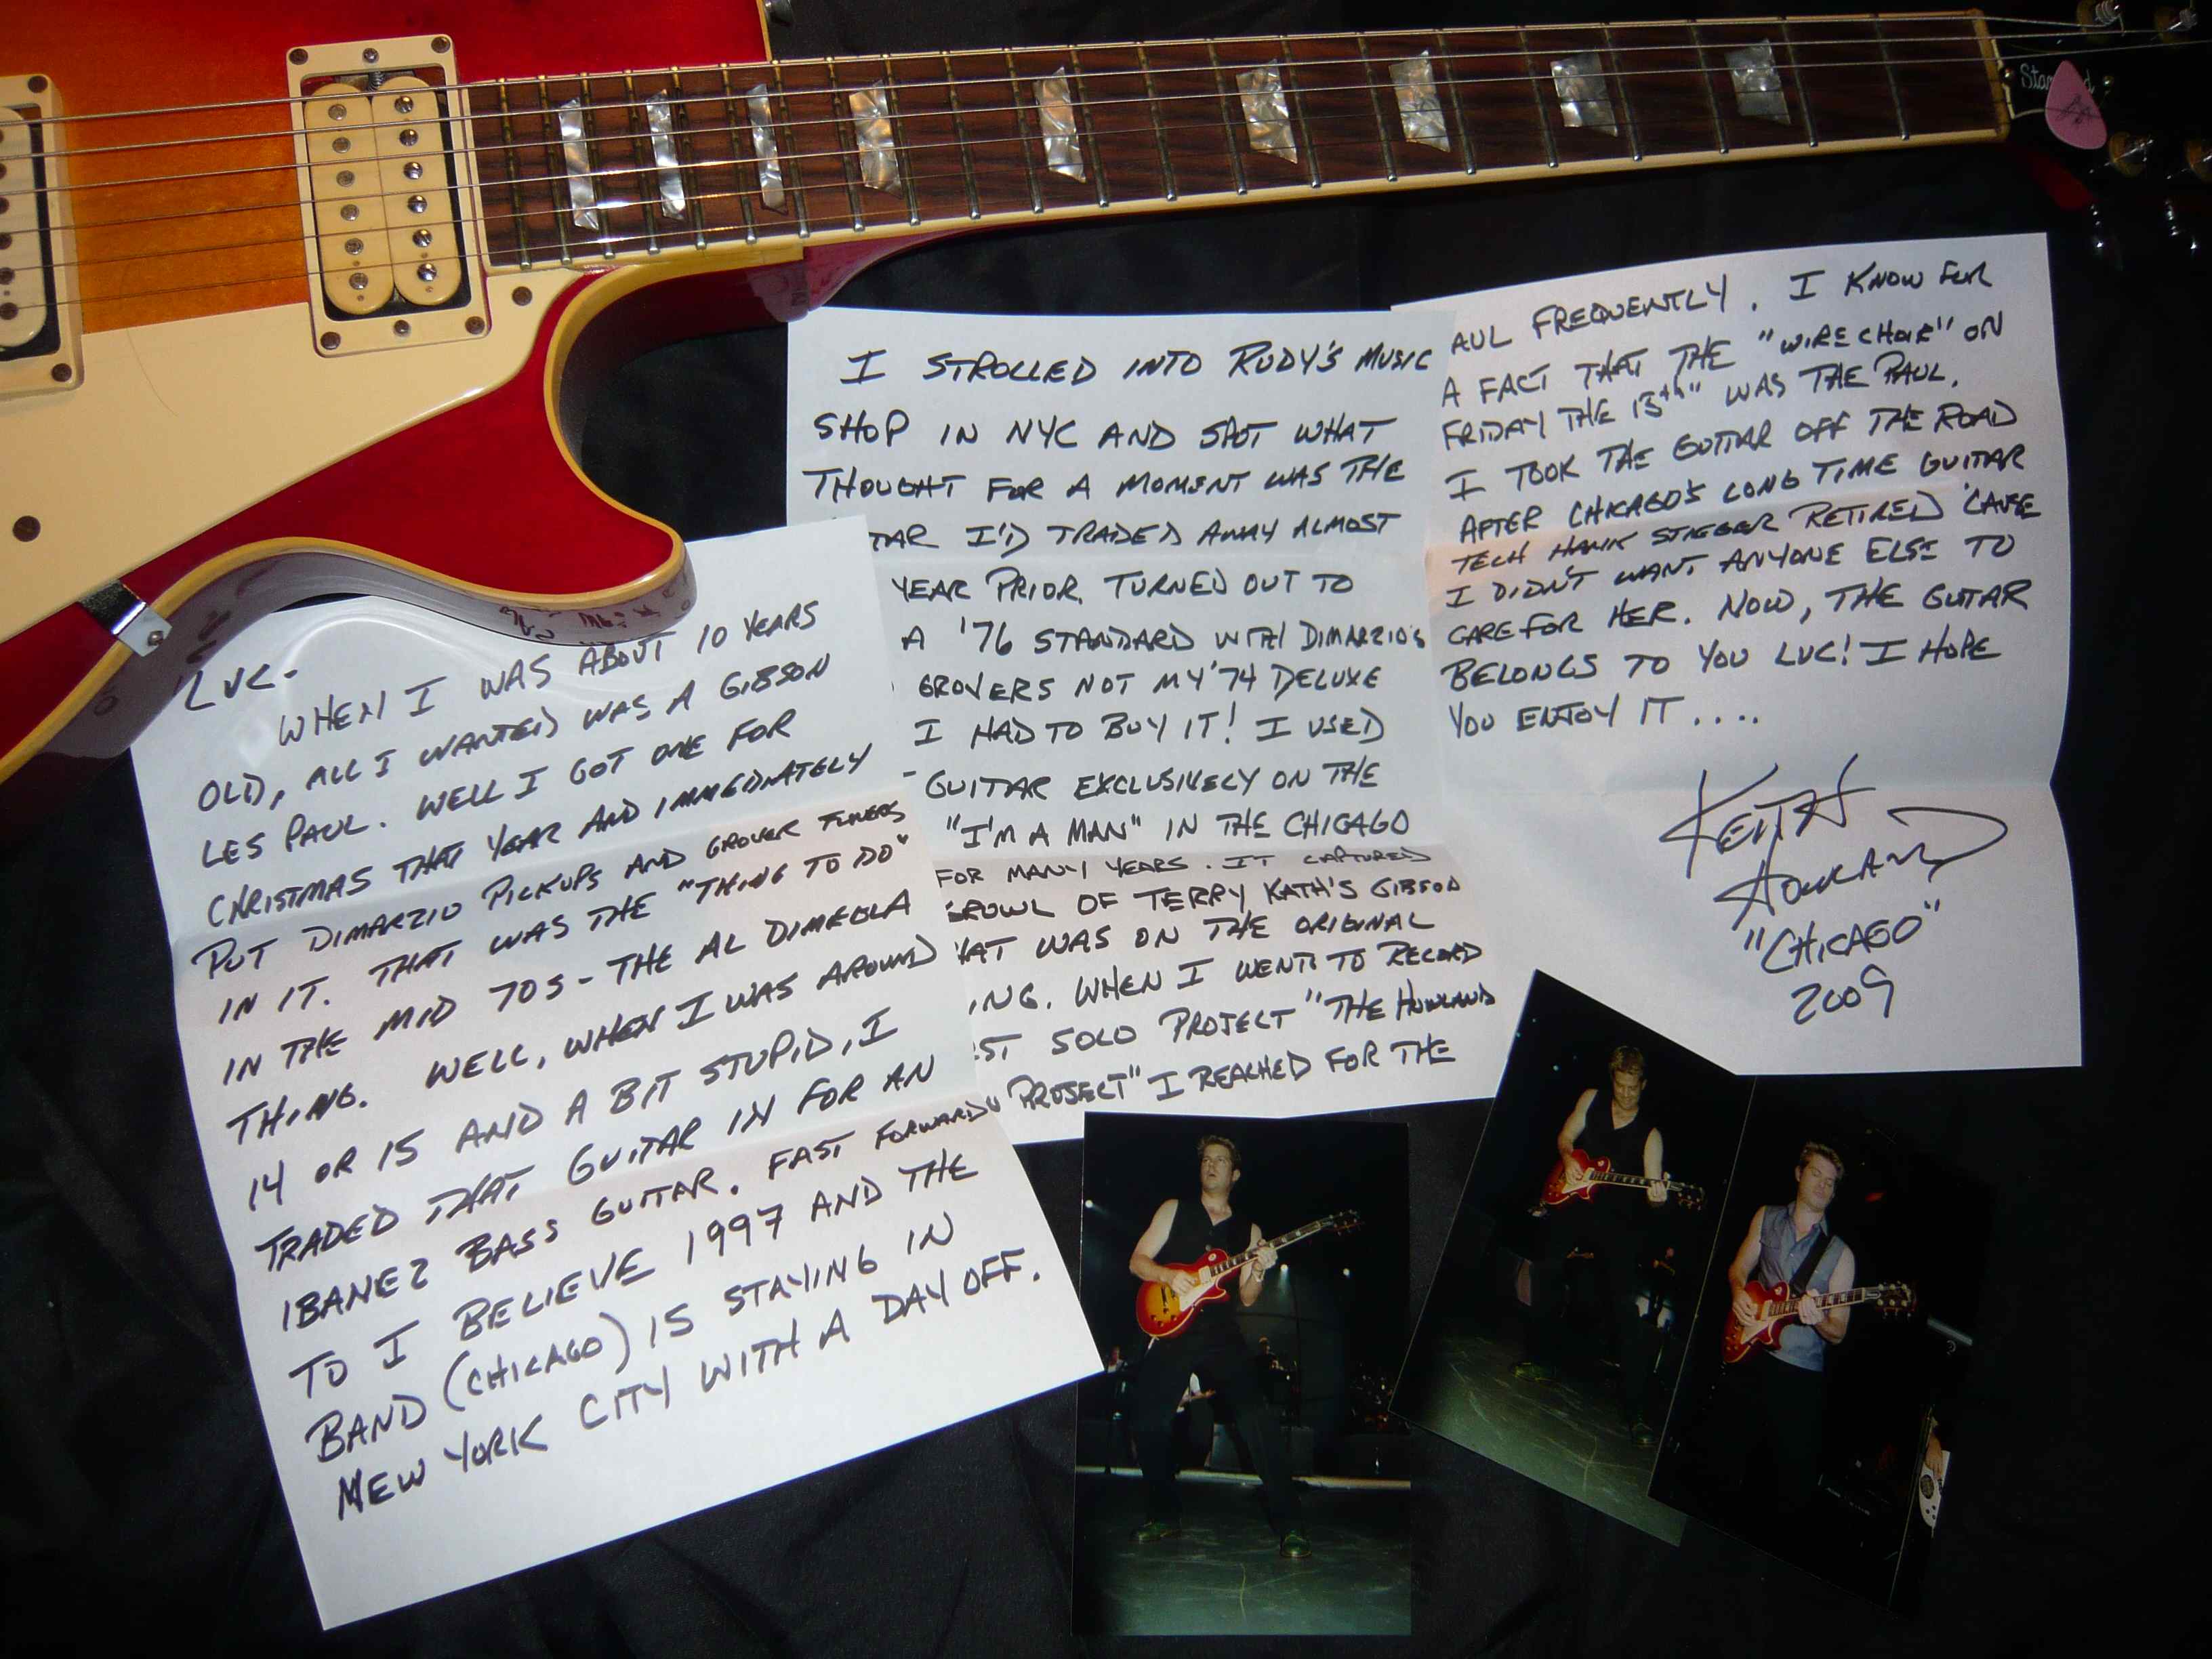 Sta d
LUC-
WHEN I WAS ABOUT 10 YEARS
OLD, ALL I WANTED WAS A GIBSON
LES PAUL. WELL I GOT ONE FOR
CHRISTMAS THAT YEAR AND IMMEDIATELY
PUT DIMARZIO PICKUPS AND GROVER TUNERS
IN IT. THAT WAS THE "THING TO DO"
IN THE MID 70S - THE AL DIMEOLA
THING. WELL, WHEN I WAS AROUND
14 OR 15 AND A BIT STUPID, I
TRADED THAT GUITAR IN FOR AN
IBANEZ BASS GUITAR. FAST FORWARD
TO I BELIEVE 1997 AND THE
BAND (CHICAGO) IS STAYING IN
NEW YORK CITY WITH A DAY OFF.
I STROLLED INTO RUDY'S MUSIC
SHOP IN NYC AND SPOT WHAT
THOUGHT FOR A MOMENT WAS THE
TAR I'D TRADED AWAY ALMOST
YEAR PRIOR. TURNED OUT TO
A '76 STANDARD WITH DIMARZIO'S
GROVERS NOT MY '74 DELUXE
I HAD TO BUY IT! I USED
GUITAR EXCLUSIVELY ON THE
"I'M A MAN" IN THE CHICAGO
FOR MANY YEARS. IT CAPTURED
GROWL OF TERRY KATH'S GIBSON
HAT WAS ON THE ORIGINAL
ING. WHEN I WENT TO RECORD
ST SOLO PROJECT "THE HOWLAND
PROJECT" I REACHED FOR THE
AUL FREQUENTLY. I KNOW FOR
A FACT THAT THE "WIRE CHOIR" ON
FRIDAY THE 13th" WAS THE PAUL.
I TOOK THE GUITAR OFF THE ROAD
AFTER CHICAGO'S LONG TIME GUITAR
TECH HANK STEIGER RETIRED 'CAUSE
I DIDN'T WANT ANYONE ELSE TO
CARE FOR HER. NOW, THE GUITAR
BELONGS TO YOU LUC! I HOPE
YOU ENJOY IT....
KEITH
HOWLAND
"CHICAGO"
2009